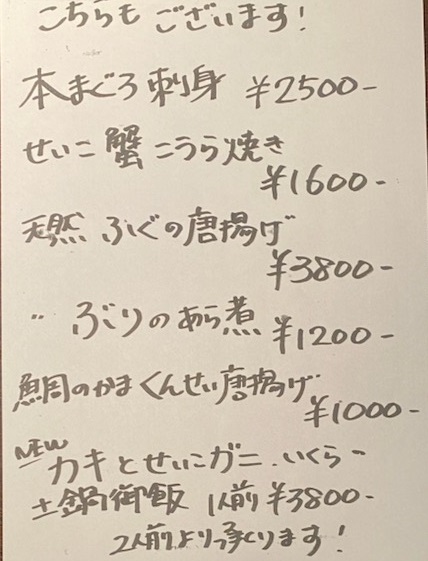 こちらもございます!
本まぐろ刺身 ¥2500-
せいこ蟹こうら焼き
¥1600-
天然ふぐの唐揚げ
¥3800-
〃 ぶりのあら煮 ¥1200-
鯛のかまくんせい唐揚げ
¥1000-
NEW カキとせいこガニ、いくらー
土鍋御飯 1人前¥3800-
2人前より承ります!